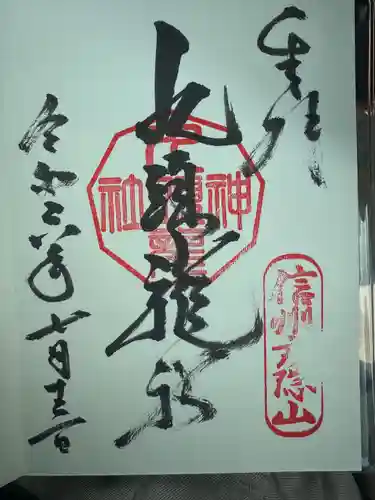 奉拝
信州戸隠山
九頭龍社
令和六年七月十三日